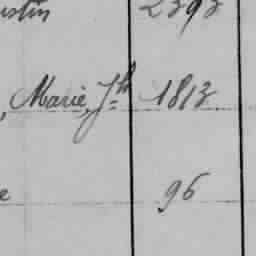 ustin 2393
, Marie, Jh 1813
e 96